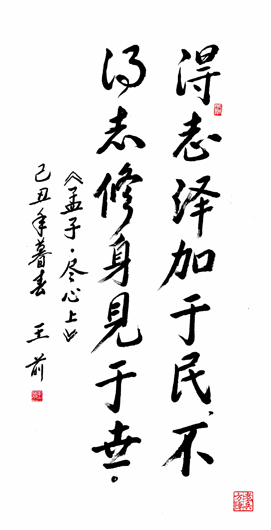 得志泽加于民，不
得志修身见于世。
《孟子·尽心上》
己丑年暮春 王前